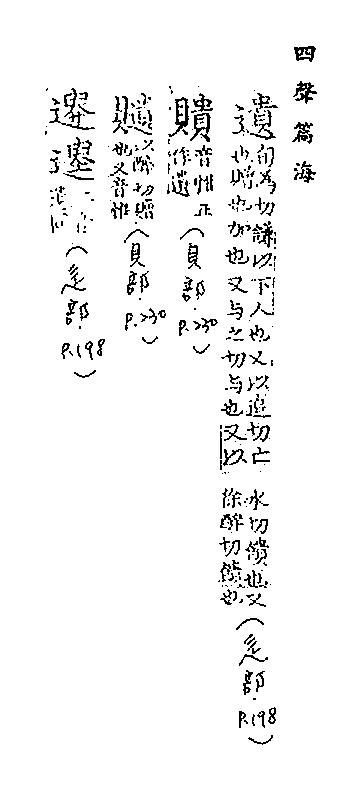 四聲篇海
遺 切謙以下人也又以追切亡也贈也加也又与之切与也又以水切饋也又徐醉切饋也(辵部.P.198)
音惟正作遺(貝部.P.230)
以醉切贈也又音惟(貝部.P.230)
二音遺(辵部.P.198)